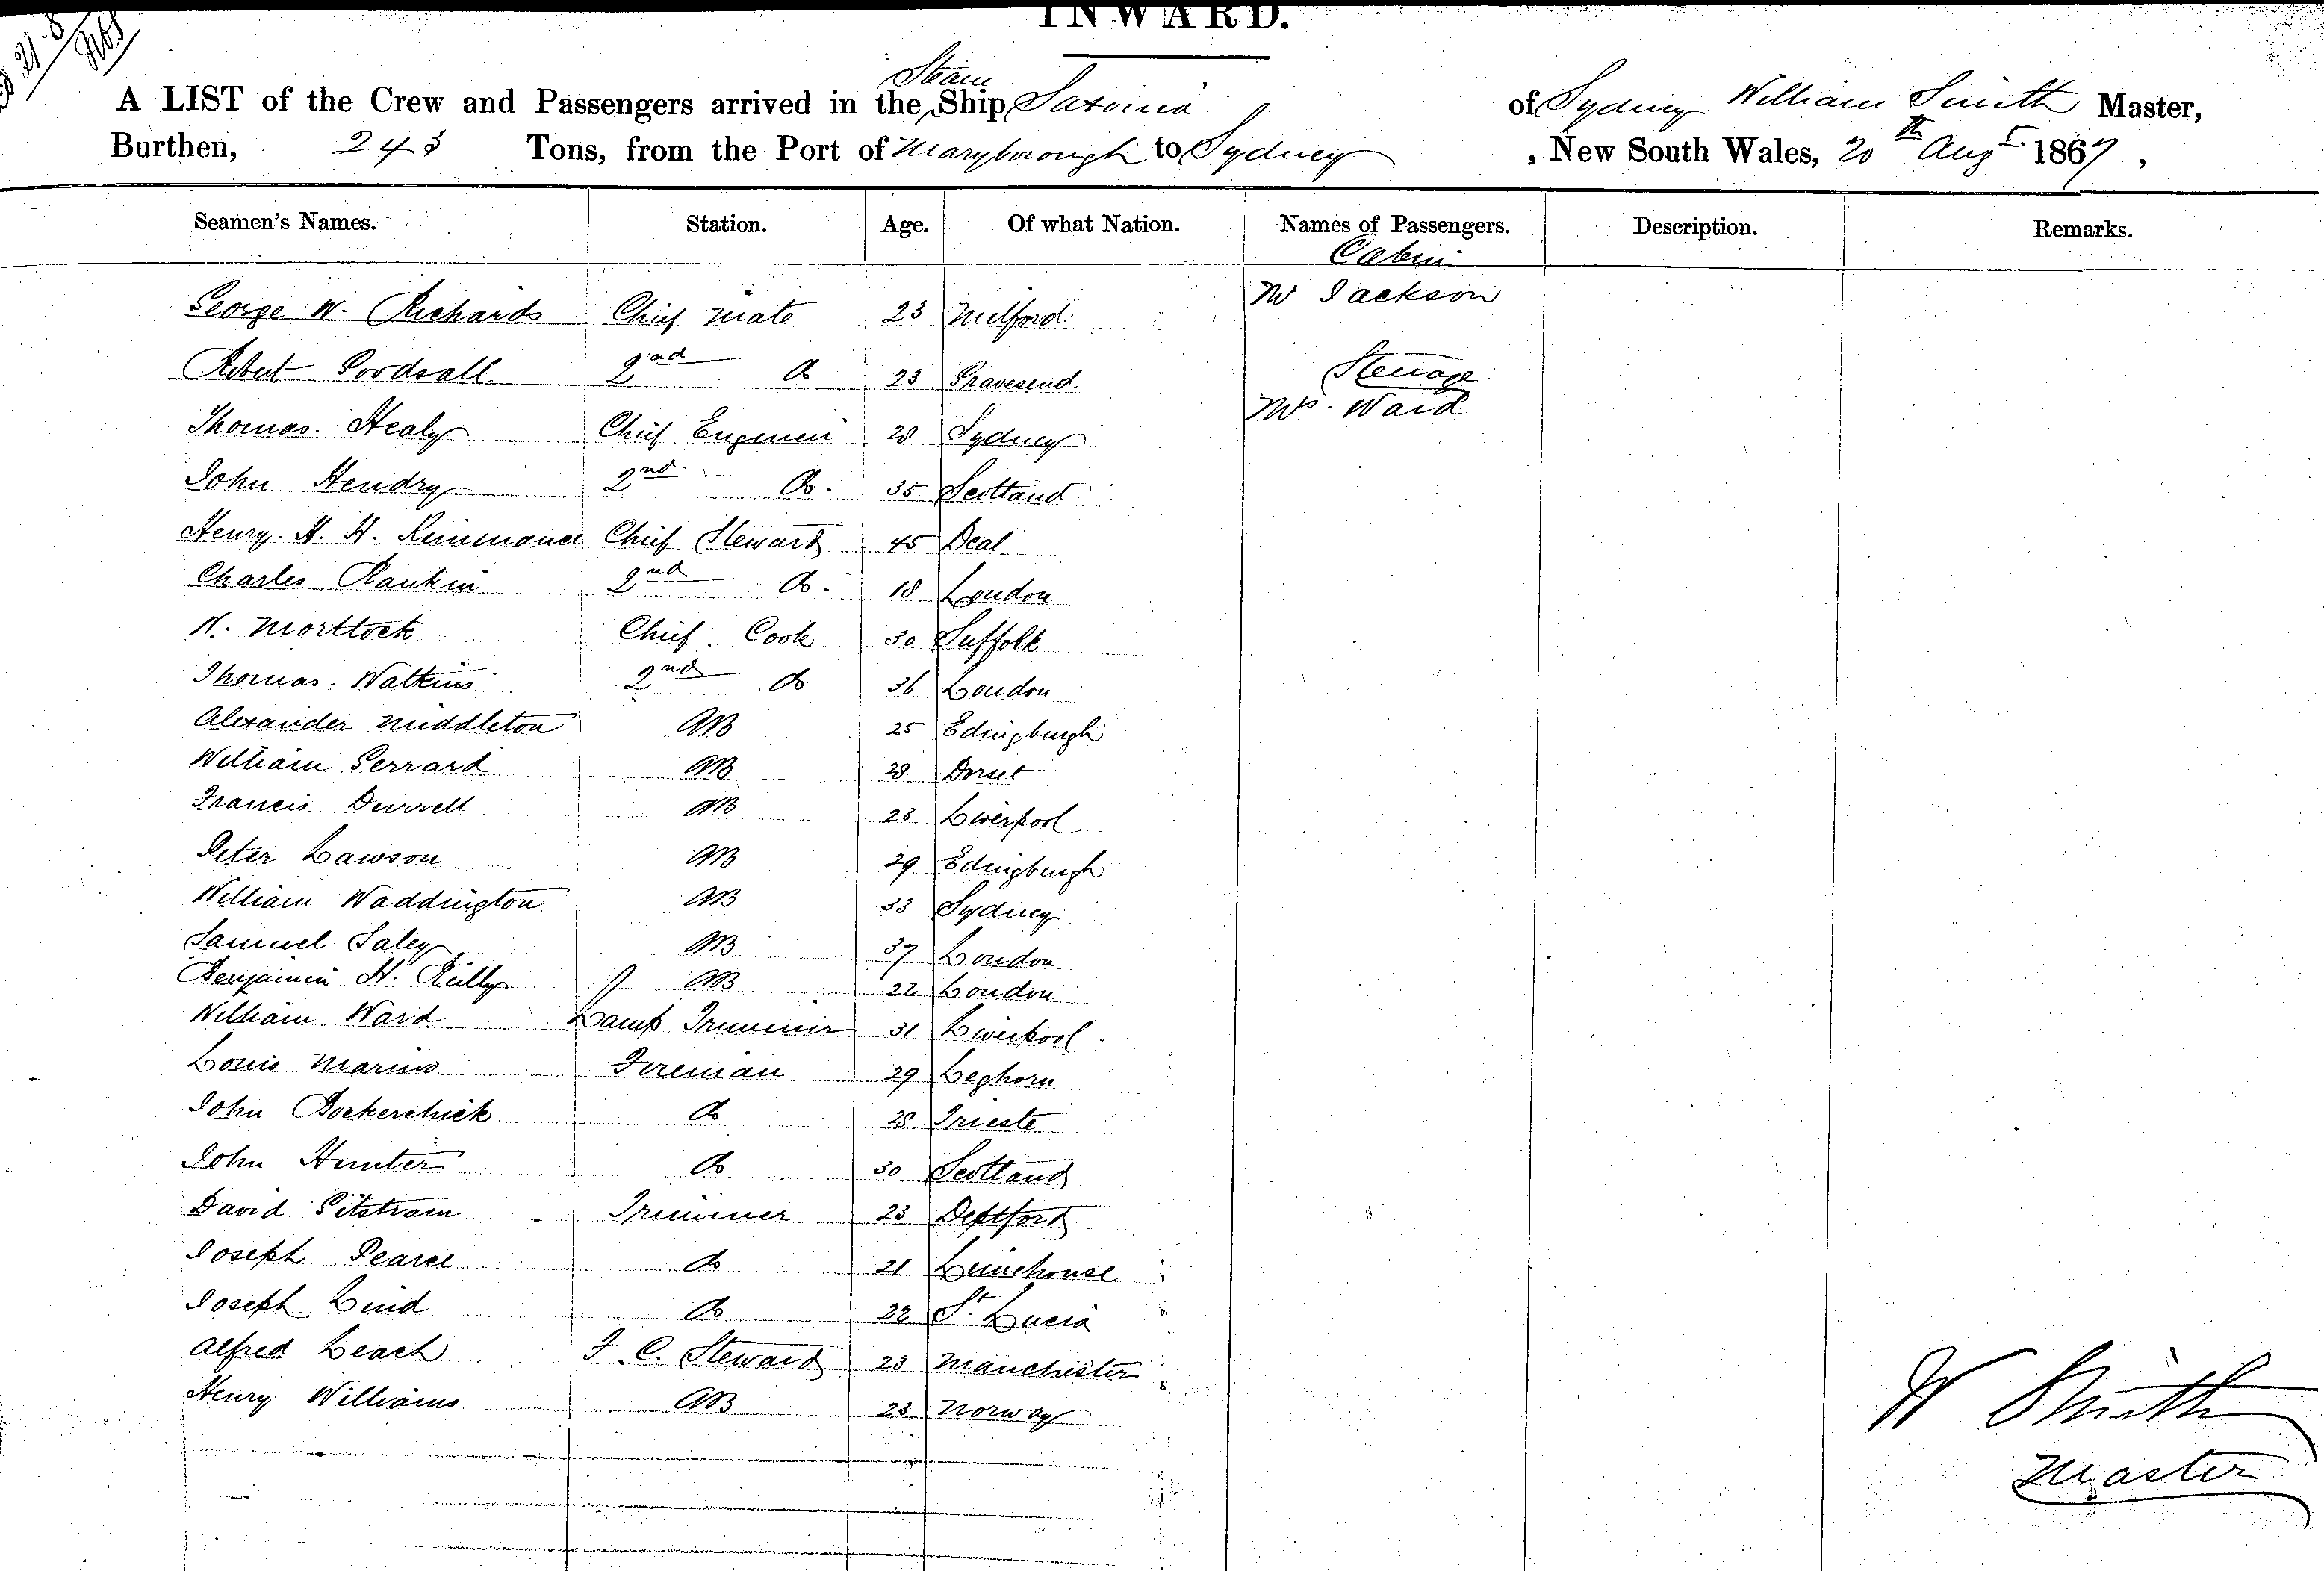 INWARD.
A LIST of the Crew and Passengers arrived in the Steam Ship Saxonia of Sydney William Smith Master,
Burthen, 243 Tons, from the Port of Maryborough to Sydney, New South Wales, 20th Augt 1867,
Seamen's Names. Station. Age. Of what Nation. Names of Passengers. Description. Remarks.
Cabin
George W. Richards Chief Mate 23 Milford Mr Jackson
Robert Goodsall 2nd Do 23 Gravesend Steerage
Thomas Healy Chief Engineer 28 Sydney Mrs. Ward
John Hendry 2nd Do. 35 Scotland
Henry H. H. Rimmance Chief Steward 45 Deal
Charles Rankin 2nd Do. 18 London
W. Mortlock Chief Cook 30 Suffolk
Thomas Watkins 2nd Do 36 London
Alexander Middleton AB 25 Edingburgh
William Gerrard AB 28 Dorset
Francis Durrell AB 23 Liverpool
Peter Lawson AB 29 Edingburgh
William Waddington AB 33 Sydney
Samuel Saley AB 37 London
Benjamin H. Rilly AB 22 London
William Ward Lamp Trimmer 31 Liverpool
Louis Marius Fireman 29 Leghorn
John Bockerchick Do 28 Trieste
John Hunter Do 30 Scotland
David Gilstram Trimmer 23 Deptford
Joseph Pearce Do 21 Limehouse
Joseph Lind Do 22 St. Lucia
Alfred Leach F. C. Steward 23 Manchester
Henry Williams AB 23 Norway
W Smith
Master